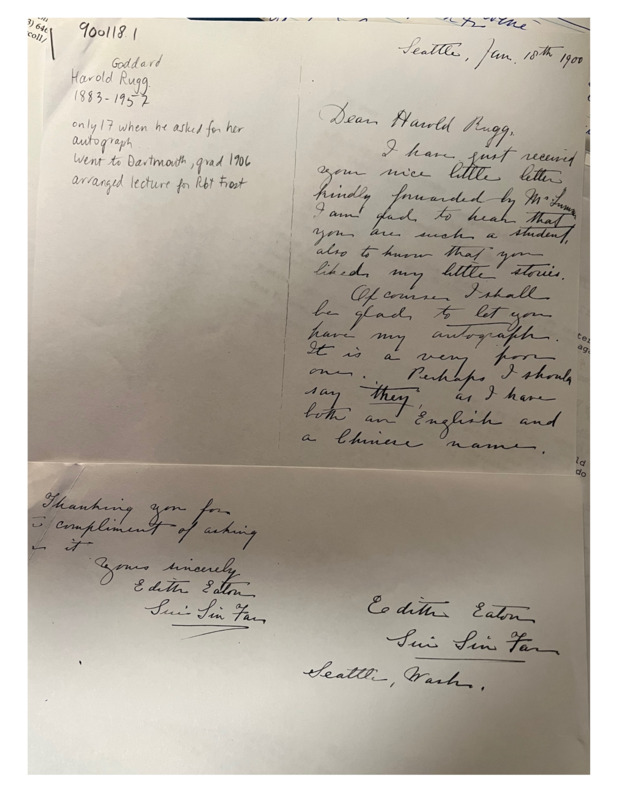 9001181
Goddard
Harold Rugg
1883-1957
only 17 when he asked for her
autograph
went to Dartmouth, grad 1906
arranged lecture for Rbt Frost
Seattle, Jan. 18th 1900
Dear Harold Rugg,
I have just received
your nice little letter
kindly forwarded by Mr
I am glad to hear that
you are such a student,
also to know that you
liked my little stories.
Of course I shall
be glad to let you
have my autograph.
It is a very poor
one. Perhaps I should
say they, as I have
both an English and
a Chinese name.
Thanking you for
compliment of asking
it
Yours sincerely
Edith Eaton
Sui Sin Far
Edith Eaton
Sui Sin Far
Seattle, Wash.